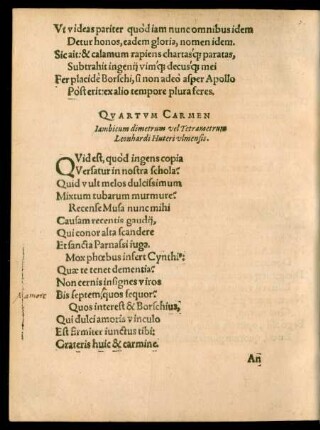 Vt videas pariter quòd iam nunc omnibus idem
Detur honos, eadem gloria, nomen idem.
Sic ait: & calamum rapiens chartasq; paratas,
Subtrahit ingenij vimq; decusq; mei
Fer placidè Borschi, si non adeò asper Apollo
Pòst erit: ex alio tempore plura feres.
QVARTVM CARMEN
Iambicum dimetrum vel Tetrametrum
Leonhardi Huteri vlmensis.
QVid est, quòd ingens copia
Versatur in nostra schola?
Quid vult melos dulcissimum
Mixtum tubarum murmure?
Recense Musa nunc mihi
Causam recentis gaudij,
Qui conor alta scandere
Et sancta Parnassi iuga.
Mox phœbus insert Cynthi⁹:
Quæ te tenet dementia?
Non cernis insignes viros
Bis septemq; quos sequor?
Quos interest & Borschius,
Qui dulci amoris vinculo
Est firmiter iunctus tibi:
Grateris huic & carmine.
An